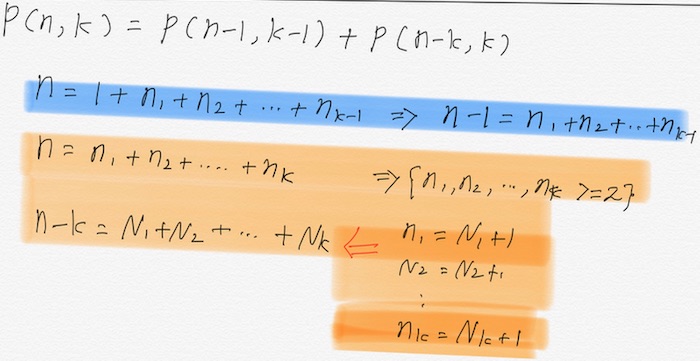 P(n,k) = P(n-1,k-1) + P(n-k,k)
n = 1 + n₁ + n₂ + ... + nₖ₋₁ => n-1 = n₁+n₂+...+nₖ₋₁
n = n₁ + n₂ + .... + nₖ => {n₁,n₂,...,nₖ >=2}
n-k = N₁+N₂ + ... + Nₖ <= n₁ = N₁+1
N₂ = N₂+1
⋮
nₖ = Nₖ+1